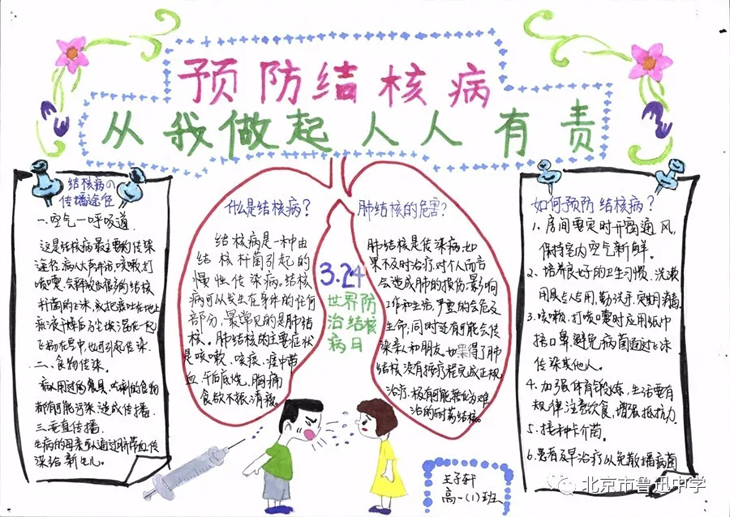 预防结核病
从我做起人人有责
结核病の
传播途径
一.空气—呼吸道.
这是结核病最主要的传染
途径.病人大声
喷嚏
杆菌的
二.食物传染.
都有
污染造成传播
三.垂直传播.
患病的母亲可通过脐带血传
染给新生儿.
什么是结核病？
结核病是一种由
结核杆菌引起的
慢性传染病.结核
病可以发生在身体的任何
部分,最常见的是肺结
核。肺结核的主要症状
是咳嗽、咳痰、痰中带
血、午后低烧、胸痛
食欲不振、消瘦。
3.24
世界防
治结核
病日
肺结核的危害？
肺结核是传染病,如
果不及时治疗,对个人而言
会造成肺的损伤,影响
工作和生活,严重的会危及
生命,同时还有可能会传
染亲人和朋友,如果得了肺
结核没有按疗程完成正规
治疗,极有可能
治的耐药结核.
如何预防结核病？
1.房间要定时开窗通风,
保持室内空气新鲜.
2.培养良好的卫生习惯,洗漱
用具专人占用,勤洗手,定期消毒
3.咳嗽、打喷嚏时应用纸巾
捂口鼻,避免病菌通过飞沫
传染其他人.
4.加强体育锻炼,生活要有
规律,注意饮食,增强抵抗力.
5.接种卡介苗.
6.患者及早治疗以免散播病菌
王子轩
高一(1)班
北京市鲁迅中学